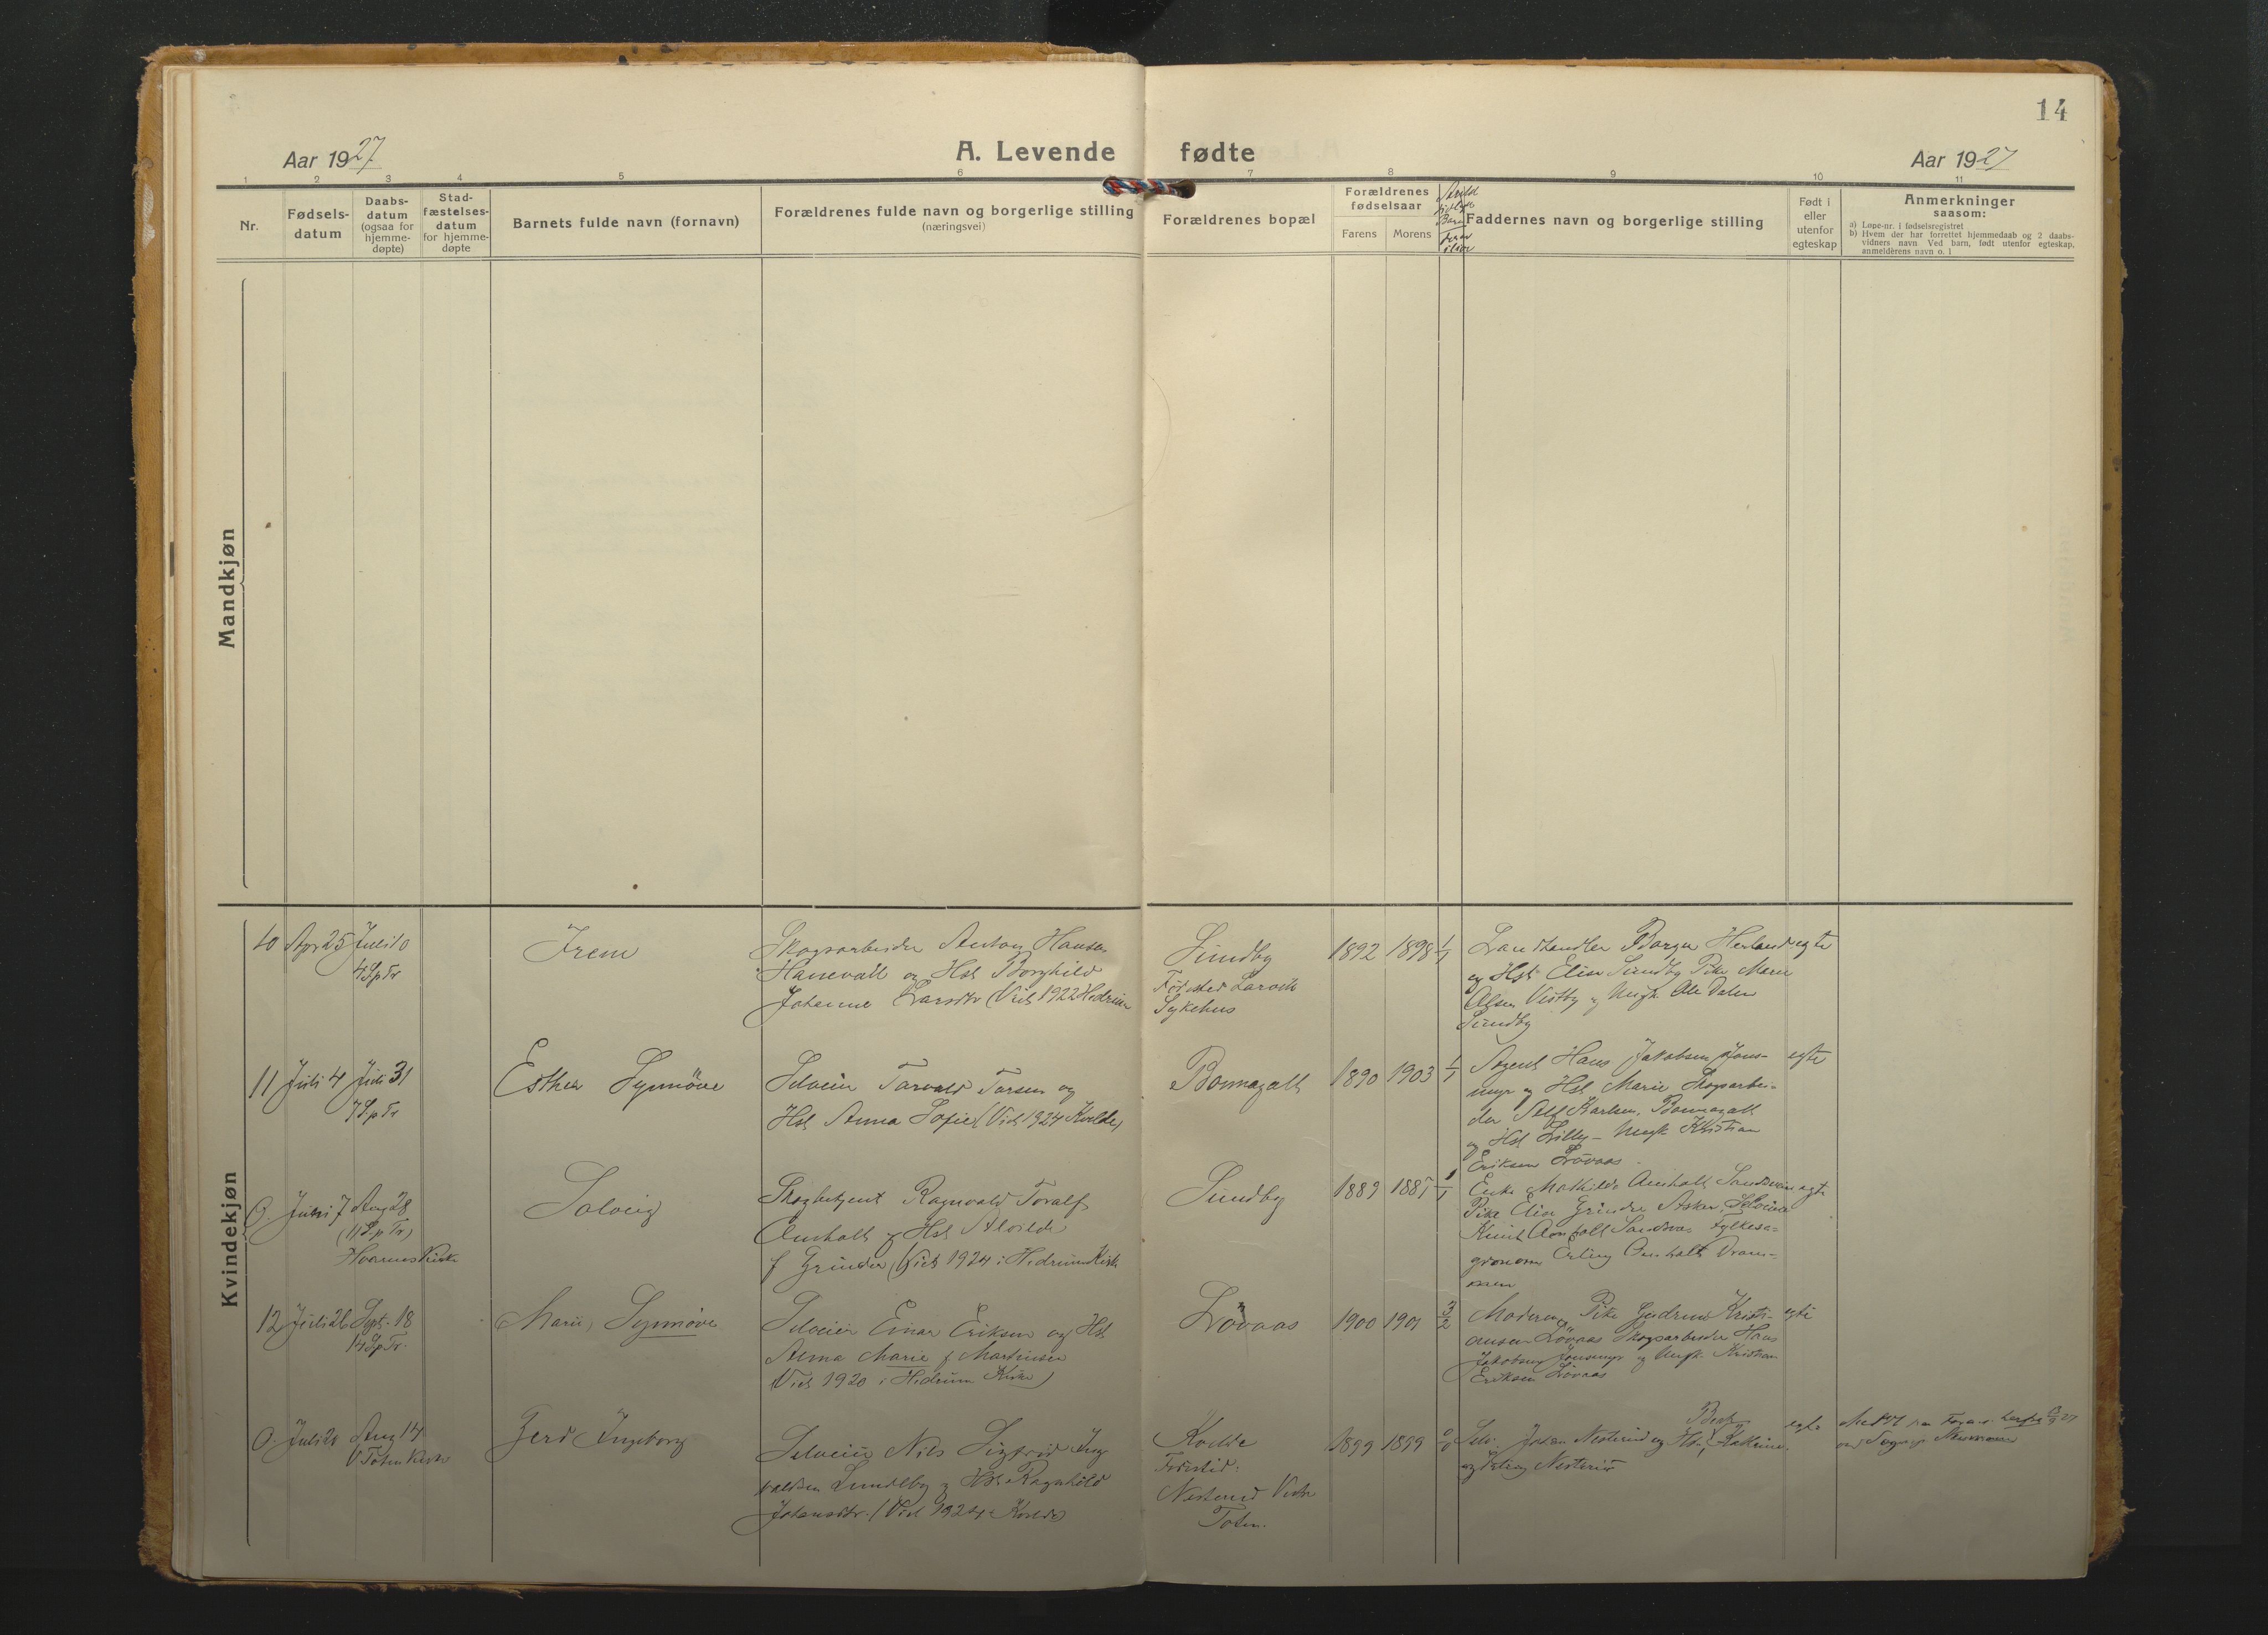 14
Aar 1927
A. Levende fødte
Aar 1927
1 2 3 4 5 6 7 8 9 10 11
Nr.
Fødsels-
datum
Daabs-
datum
(ogsaa for
hjemme-
døpte)
Stad-
fæstelses-
datum
for hjemme-
døpte
Barnets fulde navn (fornavn)
Forældrenes fulde navn og borgerlige stilling
(næringsvei)
Forældrenes bopæl
Forældrenes
fødselsaar
Farens
Morens
Faddernes navn og borgerlige stilling
Født i
eller
utenfor
egteskap
Anmerkninger
saasom:
a) Løpe-nr. i fødselsregistret
b) Hvem der har forrettet hjemmedaab og 2 daabs-
vidners navn Ved barn, født utenfor egteskap,
anmelderens navn o. l
Mandkjøn
Kvindekjøn
10 Apr 25 Juli 10
4 S p Tr
Irene
Skogsarbeider Anton Hansen
Hanevall og Hst Borghild
Johanne Larsdtr (Viet 1922 Hedrum
Sundby
Fødested Larvik
Sykehus
1892 1898 1/1
Landhandler Borger Herland
og Hst Elise Sundby Pike Marie
Olsen Vestby og Ungk Ole Dalen
Sundby
egte
11 Juli 4 Juli 31
7 S p Tr
Esther Synnöve
Selveier Torvald Torsen og
Hst Anna Sofie (Viet 1924 Kvelde)
Bommagalt
1890 1903 1/1
Agent Hans Jakobsen Jons-
myr og Hst Marie Skogsarbei-
der Alf Karlsen, Bommagalt
og Hst Lilly – Ungk Kristian
Eriksen Lövaas
egte
0. Juni 7 Aug 28
(11 S p Tr)
Hvarnes Kirke
Solveig
Skogbetjent Ragnvald Toralf
Omholt og Hst Alvilde
f Grinder (Viet 1924 i Hedrum Kirke
Sundby
1889 1885 1/1
Enke Mathilde Omholt Sandsvær
Pike Elise Grindre Asker, Selveier
Knut Omholt Sandsvær Fylkesa-
gronom Erling Omholt Dram-
men
egte
12 Juli 26 Sept. 18
14 S p Tr.
Marie, Synnöve
Selveier Einar Eriksen og Hst
Anna Marie f Martinsen
(Viet 1920 i Hedrum Kirke)
Lövaas
1900 1901 3/2
Moderen, Pike Gudrun Kristi-
ansen Lövaas Skogsarbeider Hans
Jakobsen Jonsmyr og Ungk. Kristian
Eriksen Lövaas
egte
0. Juli 20 Aug 14
V. Toten Kirke
Gerd Ingeborg
Selveier Nils Sigfred Ing
valdsen Lundby og Hst Ragnhild
Johansdtr. (Viet 1924 Kvelde)
Kvelde
Fødested:
Nesterud Vestre
Toten.
1899 1899 0/0
Selv. Johan Nesterud og Hst, Katrine
og Petra Nesterud
egte